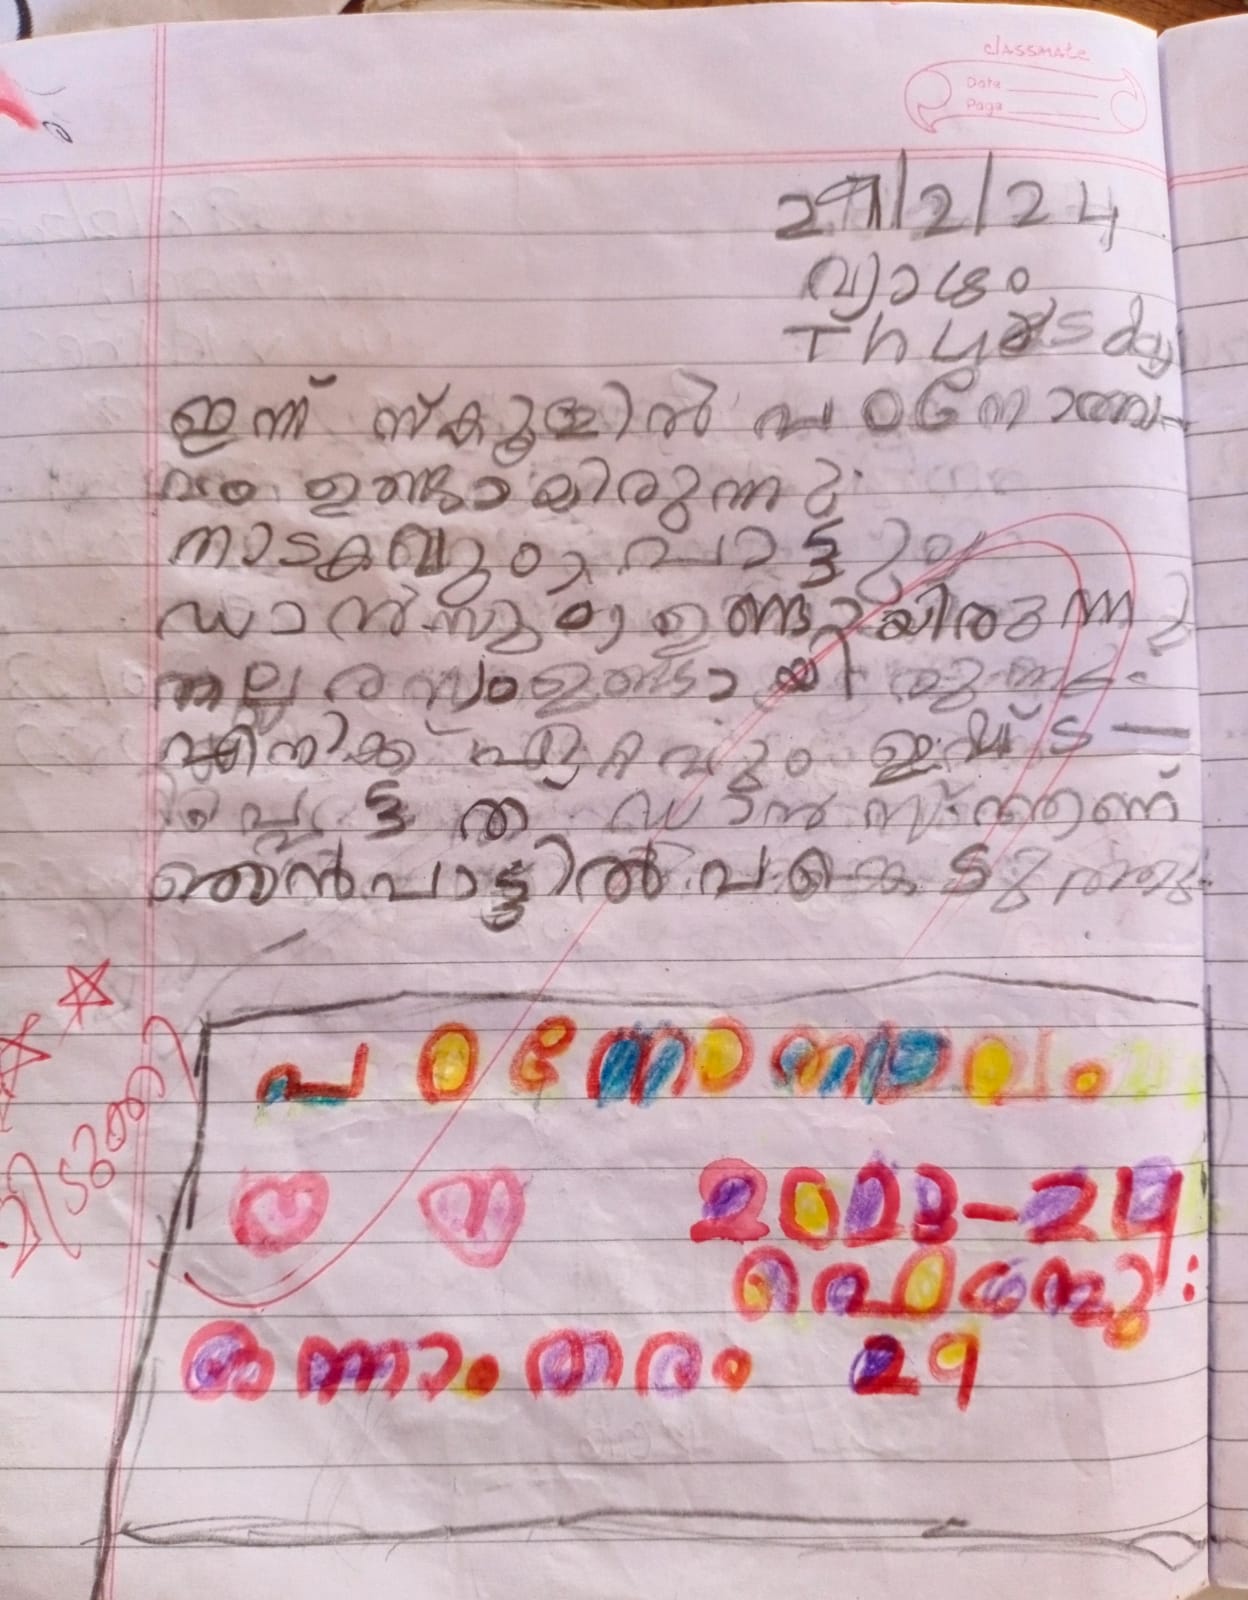 classmate
Date
Page
29/2/24
വ്യാഴം
Thursday
ഇന്ന് സ്കൂളിൽ പഠനോത്സ-
വം ഉണ്ടായിരുന്നു.
നാടകവും, പാട്ടും
ഡാൻസും ഉണ്ടായിരുന്നു
നല്ല രസം ഉണ്ടായിരുന്നു.
എനിക്ക് ഏറ്റവും ഇഷ്ട-
പ്പെട്ടത് ഡാൻസ്
ഞാൻ പാട്ടിൽ പങ്കെടുത്തു
മിടുക്കി
2023-24
ഒന്നാം തരം 29